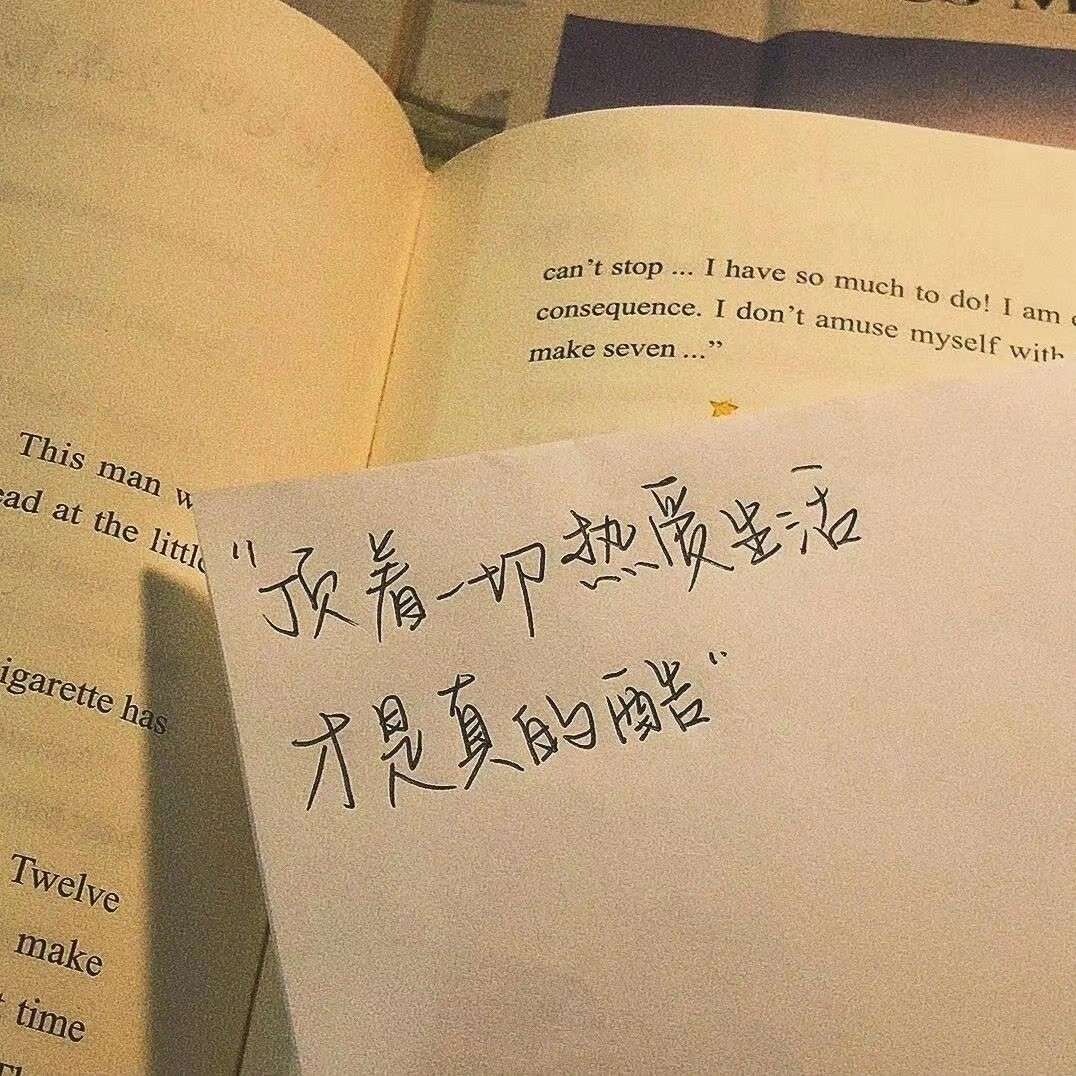 This man
at the
igarette has
Twelve
make
time
can't stop ... I have so much to do! I am
consequence. I don't amuse myself with
make seven ..."
"顶着一切热爱生活
才是真的酷"